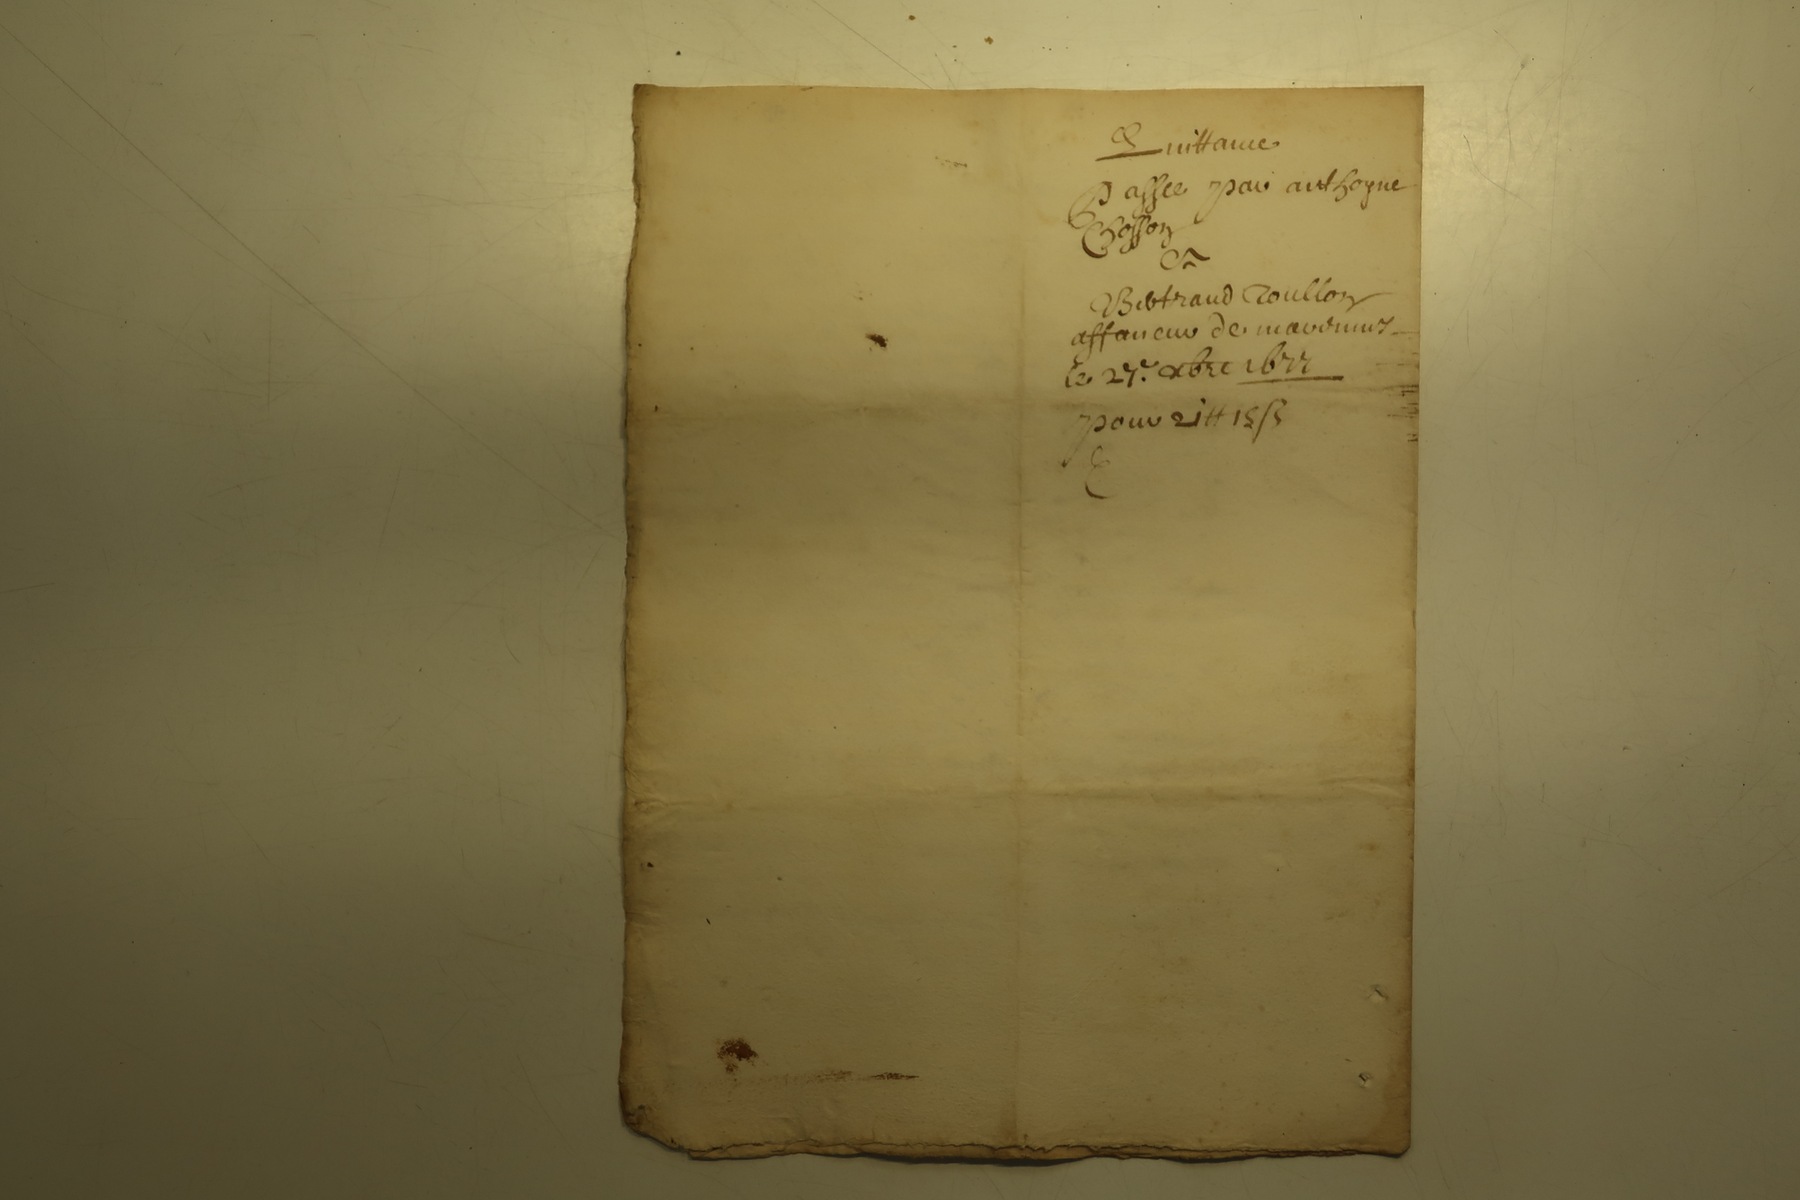 Quittance
Passee par anthoyne
Chosson
A
Bertrand Roullon
affaneur de
le 27e xbre 1677
pour 21 tt 15 s